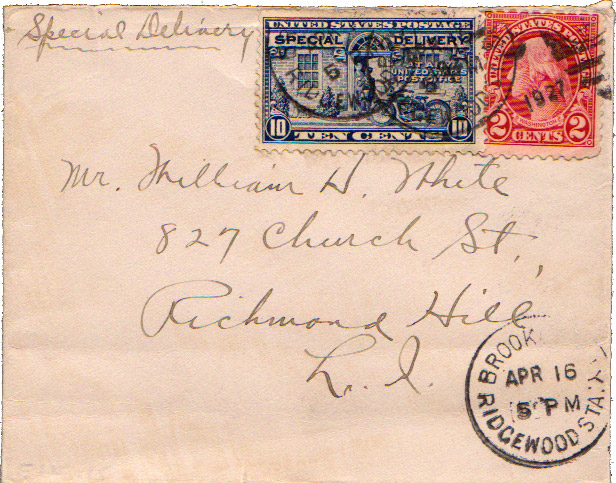 Special Delivery
UNITED STATES POSTAGE
SPECIAL DELIVERY
AT ANY
UNITED STATES
POST OFFICE
10 TEN CENTS 10
UNITED STATES POSTAGE
WASHINGTON
2 CENTS 2
1927
Mr. William H. White
827 Church St.,
Richmond Hill
L. I.
BROOK
APR 16
5 PM
RIDGEWOOD STA.